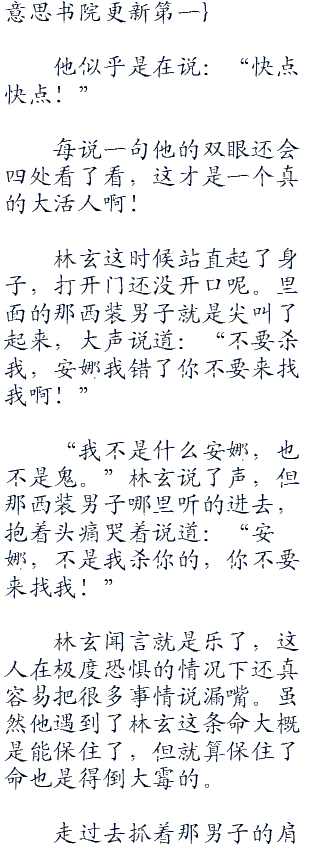 意思书院更新第一}
他似乎是在说：“快点
快点！”
每说一句他的双眼还会
四处看了看，这才是一个真
的大活人啊！
林玄这时候站直起了身
子，打开门还没开口呢。里
面的那西装男子就是尖叫了
起来，大声说道：“不要杀
我，安娜我错了你不要来找
我啊！”
“我不是什么安娜，也
不是鬼。”林玄说了声，但
那西装男子哪里听的进去，
抱着头痛哭着说道：“安
娜，不是我杀你的，你不要
来找我！”
林玄闻言就是乐了，这
人在极度恐惧的情况下还真
容易把很多事情说漏嘴。虽
然他遇到了林玄这条命大概
是能保住了，但就算保住了
命也是得倒大霉的。
走过去抓着那男子的肩